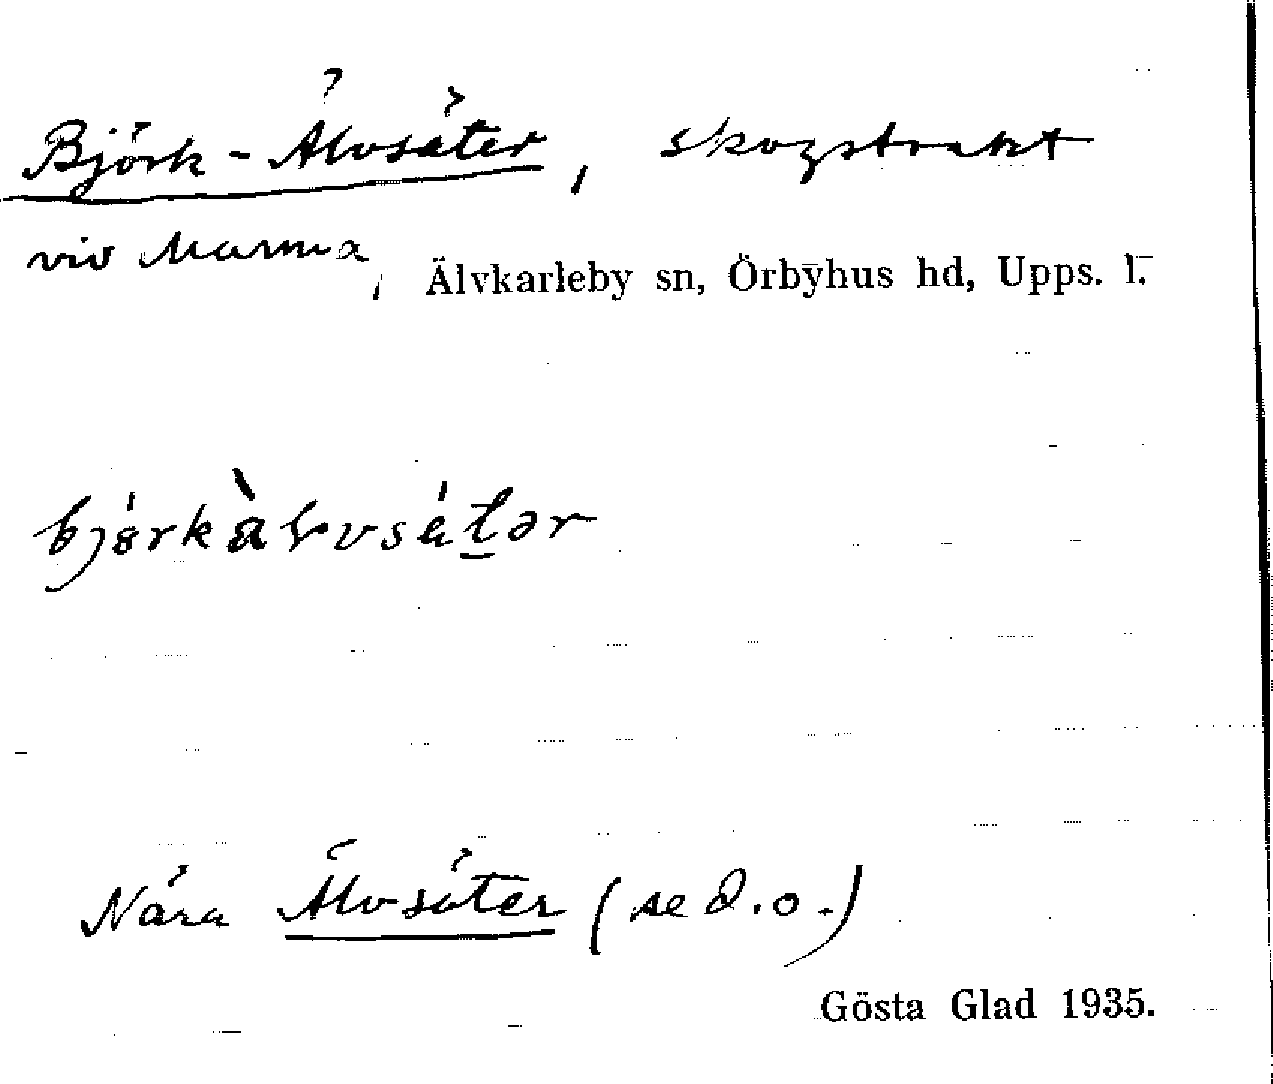 Björk-Älvsäter, skogstrakt
vid Marma, Älvkarleby sn, Örbyhus hd, Upps. l.
Nära Älvsäter (se d.o.)
Gösta Glad 1935.